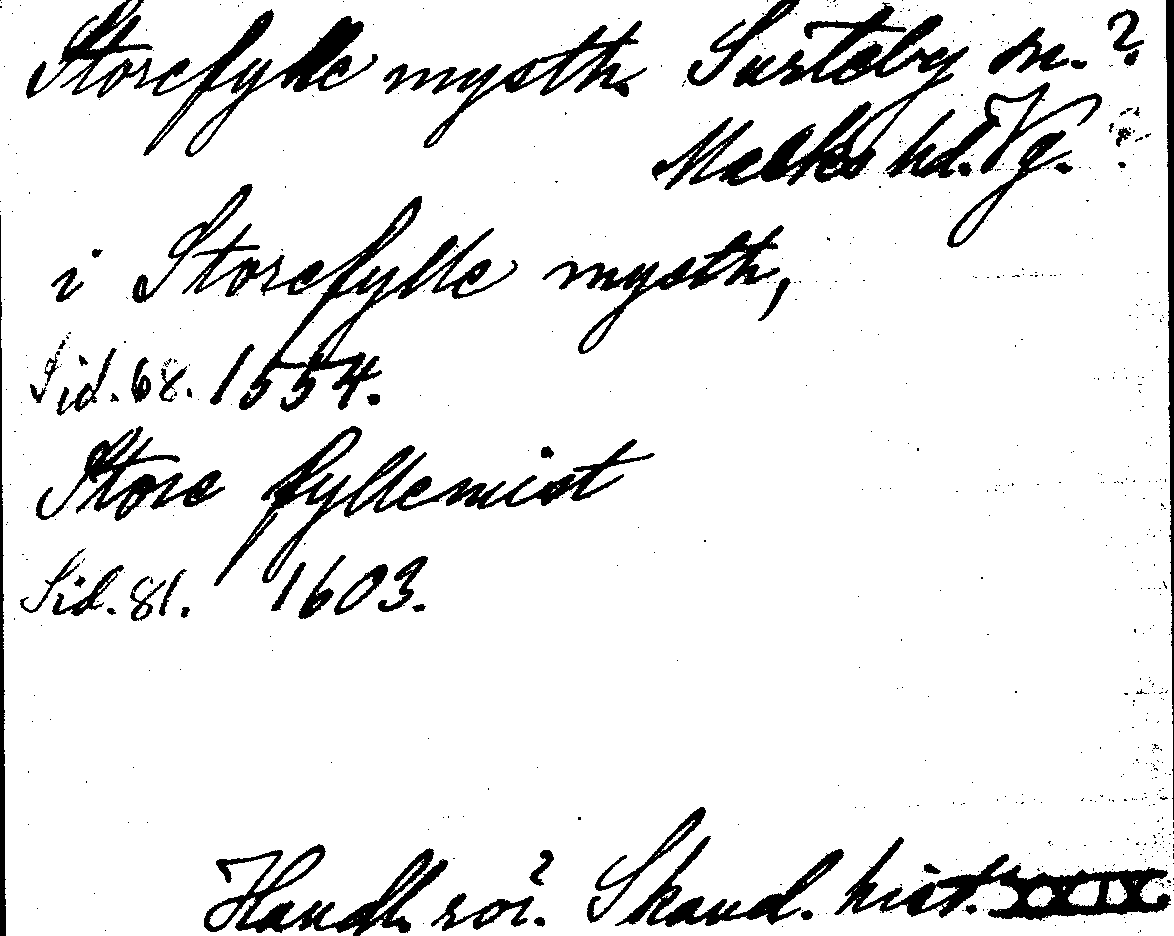 Storefylle mysth. Surteby sn.?
Marks hd. Vg. ?
i Storefylle mysth,
Sid. 68. 1554.
Store fyllemist
Sid. 81. 1603.
Handl. rör. Skand. hist. XXIX.